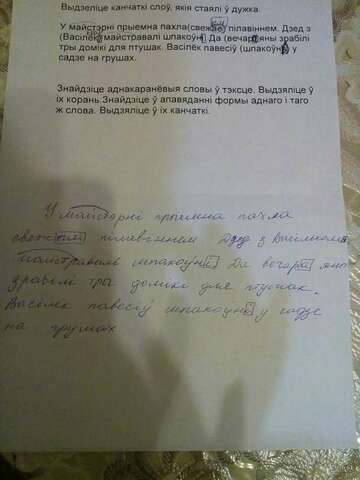 Выдзеліце канчаткі слоў, якія стаялі ў дужка.
У майстэрні прыемна пахла(свежы) пілавіннем. Дзед з
(Васілёк) майстравалі шпакоўні Да (вечар) яны зрабілі
тры домікі для птушак. Васілёк павесіў (шпакоўня) у
садзе на грушах.
Знайдзіце аднакаранёвыя словы ў тэксце. Выдзяліце ў
іх корань Знайдзіце ў апавяданні формы аднаго і таго
ж слова. Выдзяліце ў іх канчаткі.
У майстэрні прыемна пахла
свежым пілавіннем Дзед з Васільком
майстравалі шпакоўні Да вечара яны
зрабілі тры домікі для птушак.
Васілек павесіў шпакоўні у садзе
на грушах